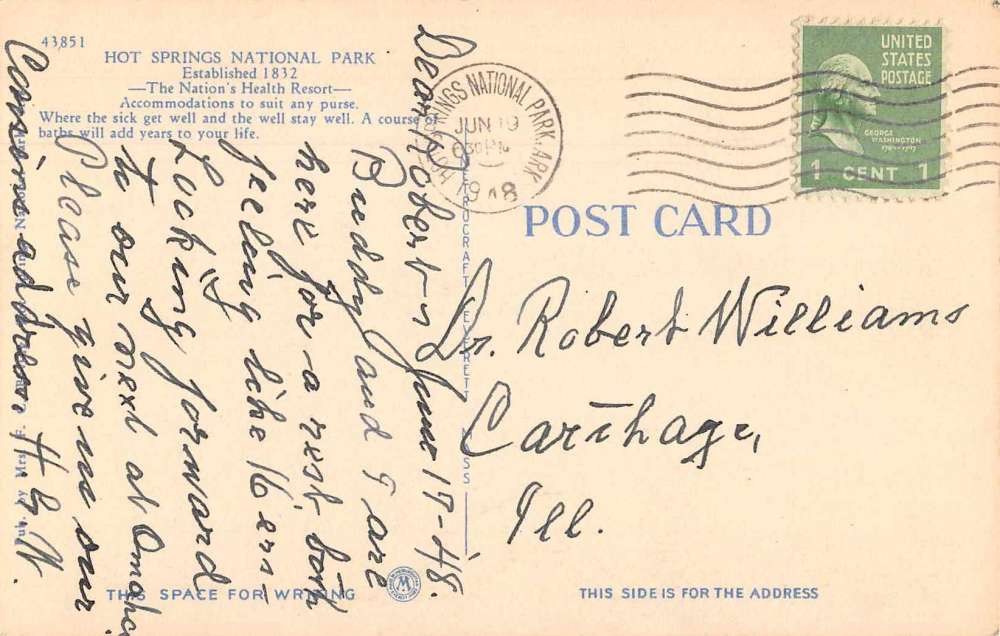 43851
HOT SPRINGS NATIONAL PARK
Established 1832
—The Nation's Health Resort—
Accommodations to suit any purse.
Where the sick get well and the well stay well. A course of
baths will add years to your life.
HOT SPRINGS NATIONAL PARK, ARK.
JUN 19
30 PM
1948
UNITED
STATES
POSTAGE
GEORGE
WASHINGTON
1 CENT 1
POST CARD
Dear Robert - June 17-48.
Buddy and I are
here for a rest, both
feeling like 16 ers -
Looking forward
to our next at Omaha,
Please give us our
Cansins address. H.G.W.
Dr. Robert Williams
Carthage,
Ill.
Pub. by Mrs. F.
METROCRAFT EVERETT MASS
THIS SPACE FOR WRITING
M
THIS SIDE IS FOR THE ADDRESS